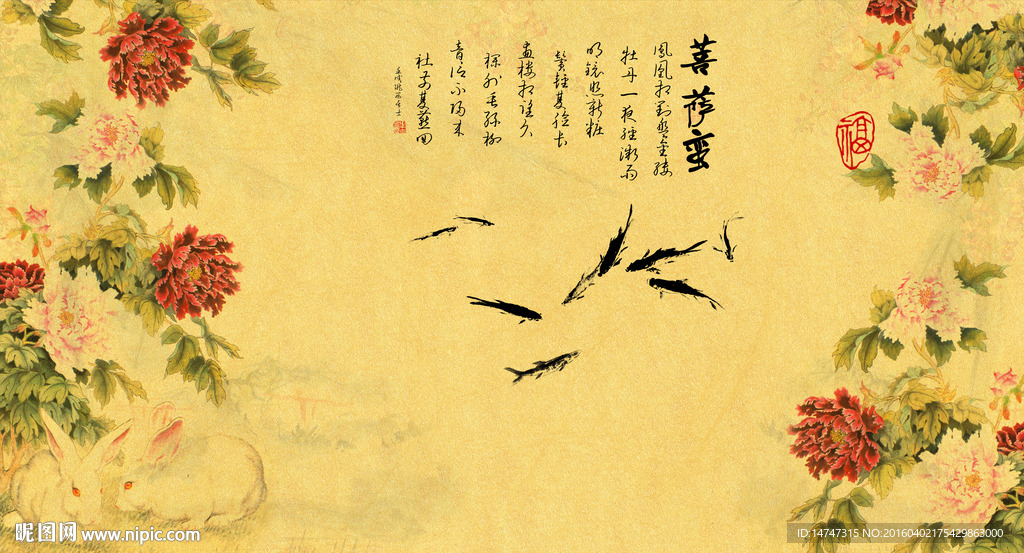 菩萨蛮
凤凰相对盘金缕
牡丹一夜经微雨
明镜照新粧
鬓轻双脸长
画楼相望久
栏外垂丝柳
音信不归来
社前双燕回
福
昵图网 www.nipic.com
ID:14747315 NO:20160402175429863000